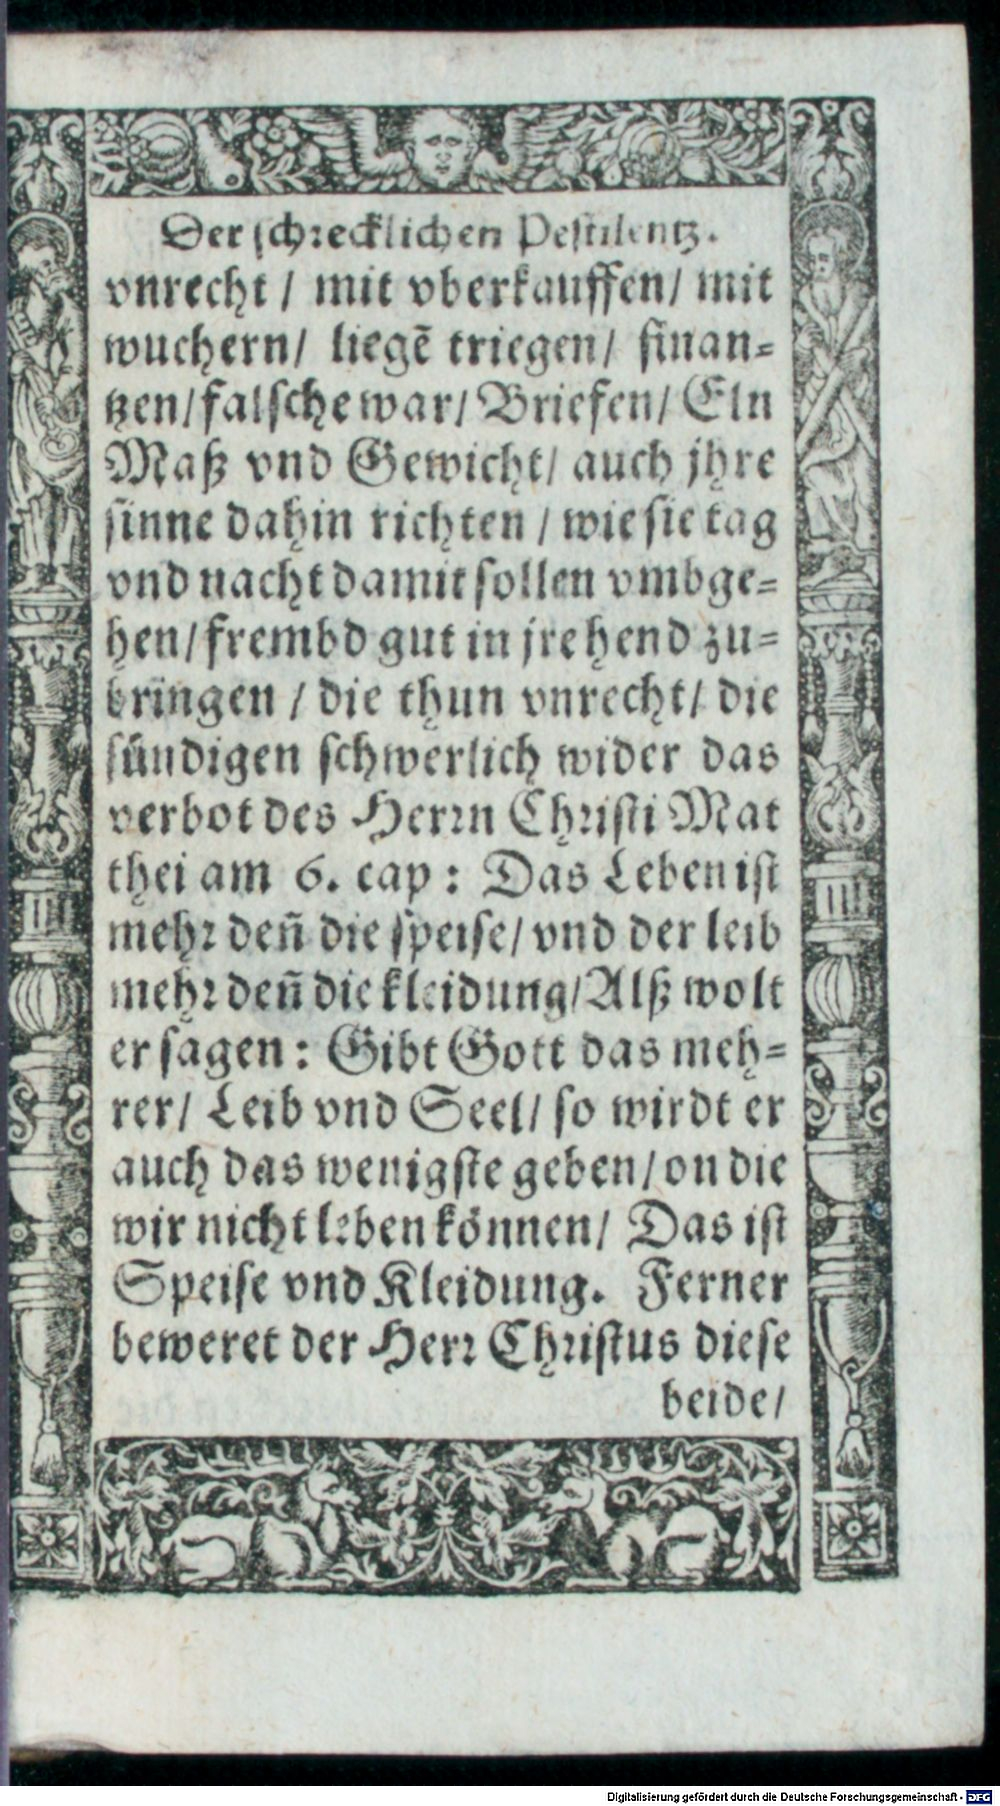 Der schrecklichen Pestilentz.
vnrecht / mit vberkauffen / mit
wuchern / liegē triegen / finan-
tzen / falsche war / Briefen / Eln
Maß vnd Gewicht / auch jhre
sinne dahin richten / wie sie tag
vnd nacht damit sollen vmbge-
hen / frembd gut in jre hend zu-
bringen / die thun vnrecht / die
sündigen schwerlich wider das
verbot des Herrn Christi Mat
thei am 6. cap: Das Leben ist
mehr deñ die speise / vnd der leib
mehr deñ die kleidung / Alß wolt
er sagen: Gibt Gott das meh-
rer / Leib vnd Seel / so wirdt er
auch das wenigste geben / on die
wir nicht leben können / Das ist
Speise vnd Kleidung. Ferner
beweret der Herr Christus diese
beide /
Digitalisierung gefördert durch die Deutsche Forschungsgemeinschaft - DFG